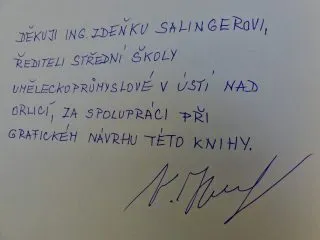 DĚKUJI ING. ZDEŇKU SALINGEROVI,
ŘEDITELI STŘEDNÍ ŠKOLY
UMĚLECKOPRŮMYSLOVÉ V ÚSTÍ NAD
ORLICÍ, ZA SPOLUPRÁCI PŘI
GRAFICKÉM NÁVRHU TÉTO KNIHY.